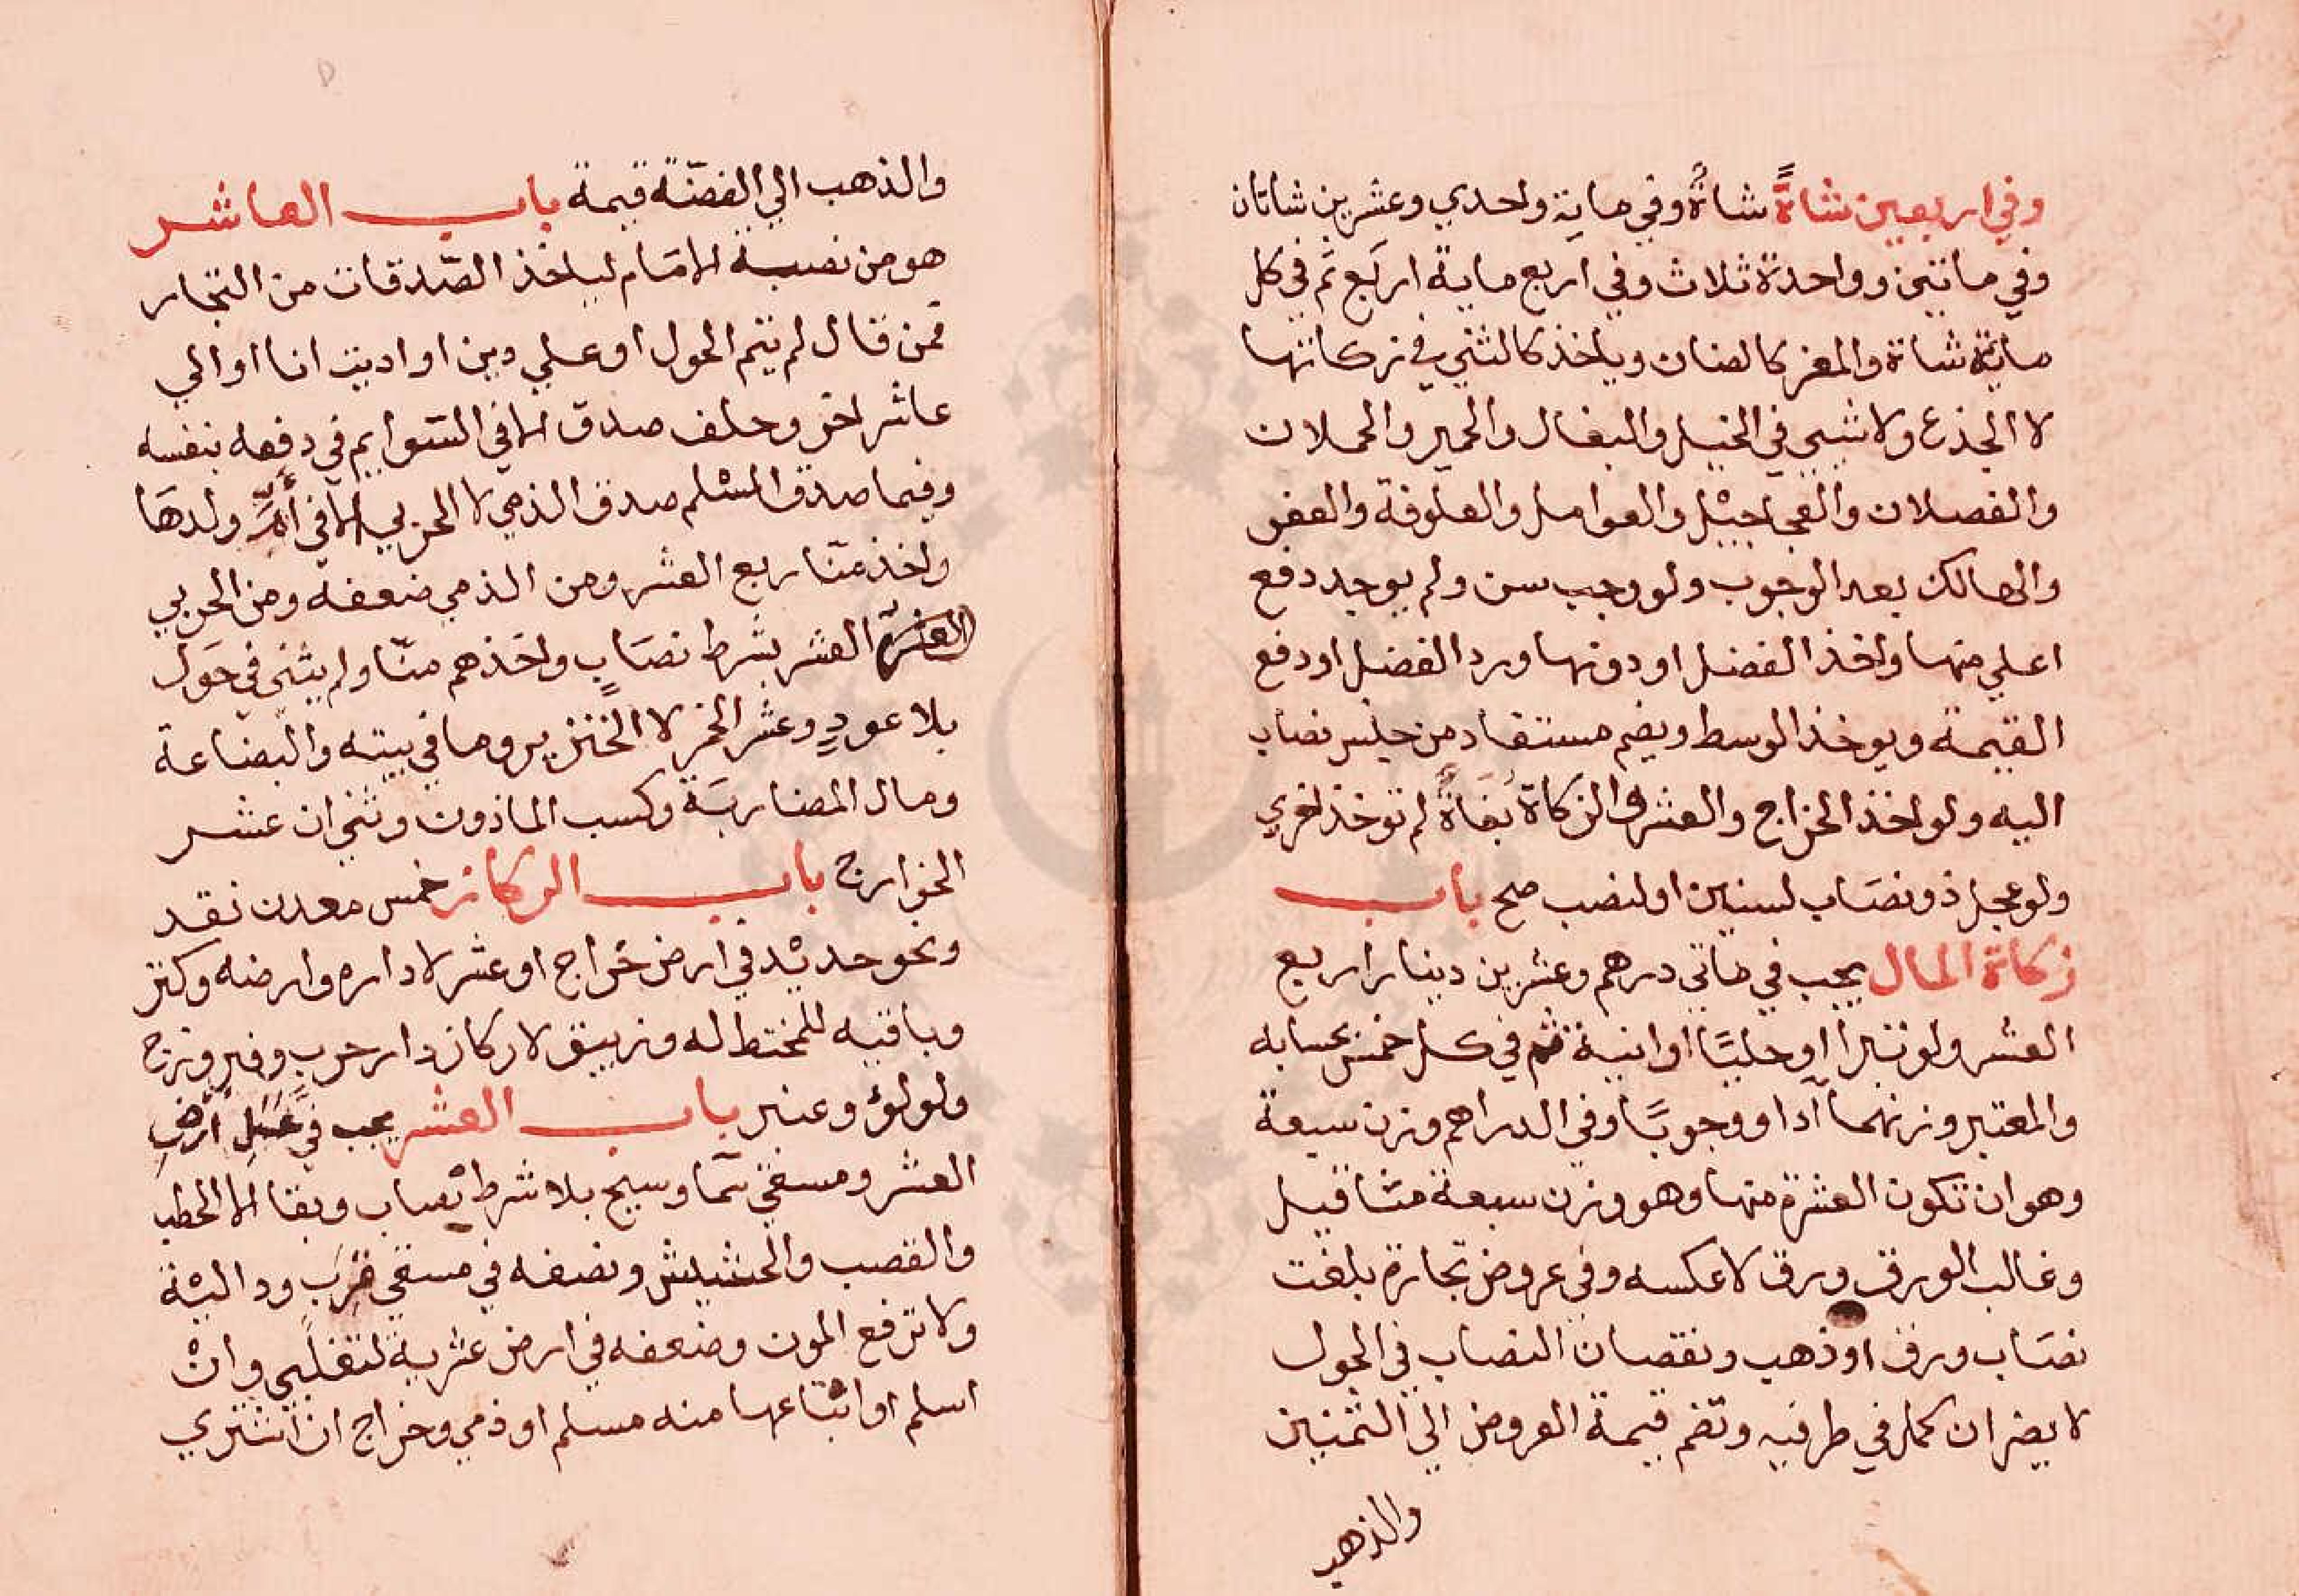 وفي اربعين شاةً شاةٌ وفي ماية واحدي وعشرين شاتان
وفي ماتين وواحدة ثلاث وفي اربع ماية اربَع ثم في كل
ماية شاة والمعز كالضان وياخذ كالثني في زكاتها
لا الجذع ولا شيي في الخيل والبغال والحمير والحملان
والفصلان والعجاجيْل والعوامل والعلوفة والعفو
والهالك بعد الوجوب ولو وجب سن ولم يوجد دفع
اعلي منها واخذ الفضل او دونها ورد الفضل او دفع
القيمة ويوخذ الوسط ويضم مستفاد من جنس نصاب
اليه ولو اخذ الخراج والعشر والزكاة بُغَاةٌ لم توخذ اخري
ولو عجل ذو نصَاب لسنين او لنصب صح باب
زكاة المال يجب في ماتي درهم وعشرين دينارا ربع
العشر ولو تبرا او حليًا او انية ثم في كل خمس بحسابه
والمعتبر وزنهما آدا ووجوبًا وفي الدراهم وزن سبعة
وهو ان تكون العشرة منها وهو وزن سبعة مثاقيل
وغالب الورق ورق لا عكسه وفي عروض تجارة بلغت
نصَاب ورق او ذهب ونقصان النصاب في الحول
لا يضر ان كمل في طرفيه وتضم قيمة العروض الي الثمنين
والذهب
والذهب الي الفضّة قيمة باب العاشر
هو من نصبه الامَام لياخذ الصّدقات من التجار
فمن قال لم يتم الحول او علي دين او اديت انا او الي
عاشر اخر وحلف صدق الا في السّوايم في دفعه بنفسه
وفيما صدق المسْلم صدق الذمي لا الحربي الا في أُمِّ ولدهَا
واخذ منّا ربع العشر ومن الذمي ضعفه ومن الحربي
العشر بشرط نصَابٍ واخَذهم منّا ولم يثني في حَول
بلا عودٍ وعشر الخمر لا الخنزير وما في بيته والبضاعة
ومال المضاربَة وكسب الماذون وثني ان عشر
الخوارج باب الركاز خمس معدن نقد
ونحو حديْد في ارض خَراج او عشر لا داره وارضه وكنز
وباقيه للمختط له وزيبق لا ركاز دار حربٍ وفيروزج
ولولوء وعنبر باب العشر يجب في عَسَلِ أَرْضِ
العشر ومسقي سَما وسيح بلا شرط نصاب وبقا الا الحطب
والقصب والحشيش ونصفه في مسقي غَرْب ودالية
ولا ترفع المون وضعفه في ارض عشرية لتغلبي وانْ
اسلم او ابْتاعها منه مسلم او ذمي وخراج ان اشتري